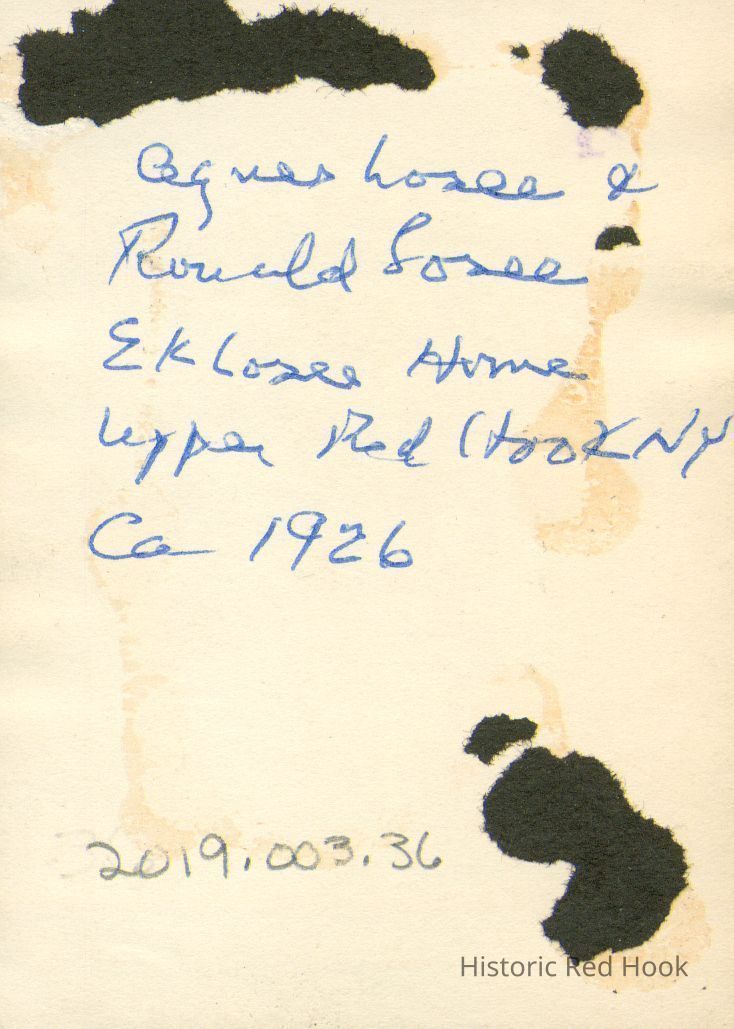 Agnes Losee &
Ronald Losee
EK Losee Home
Upper Red Hook NY
Ca 1926
2019.003.36
Historic Red Hook